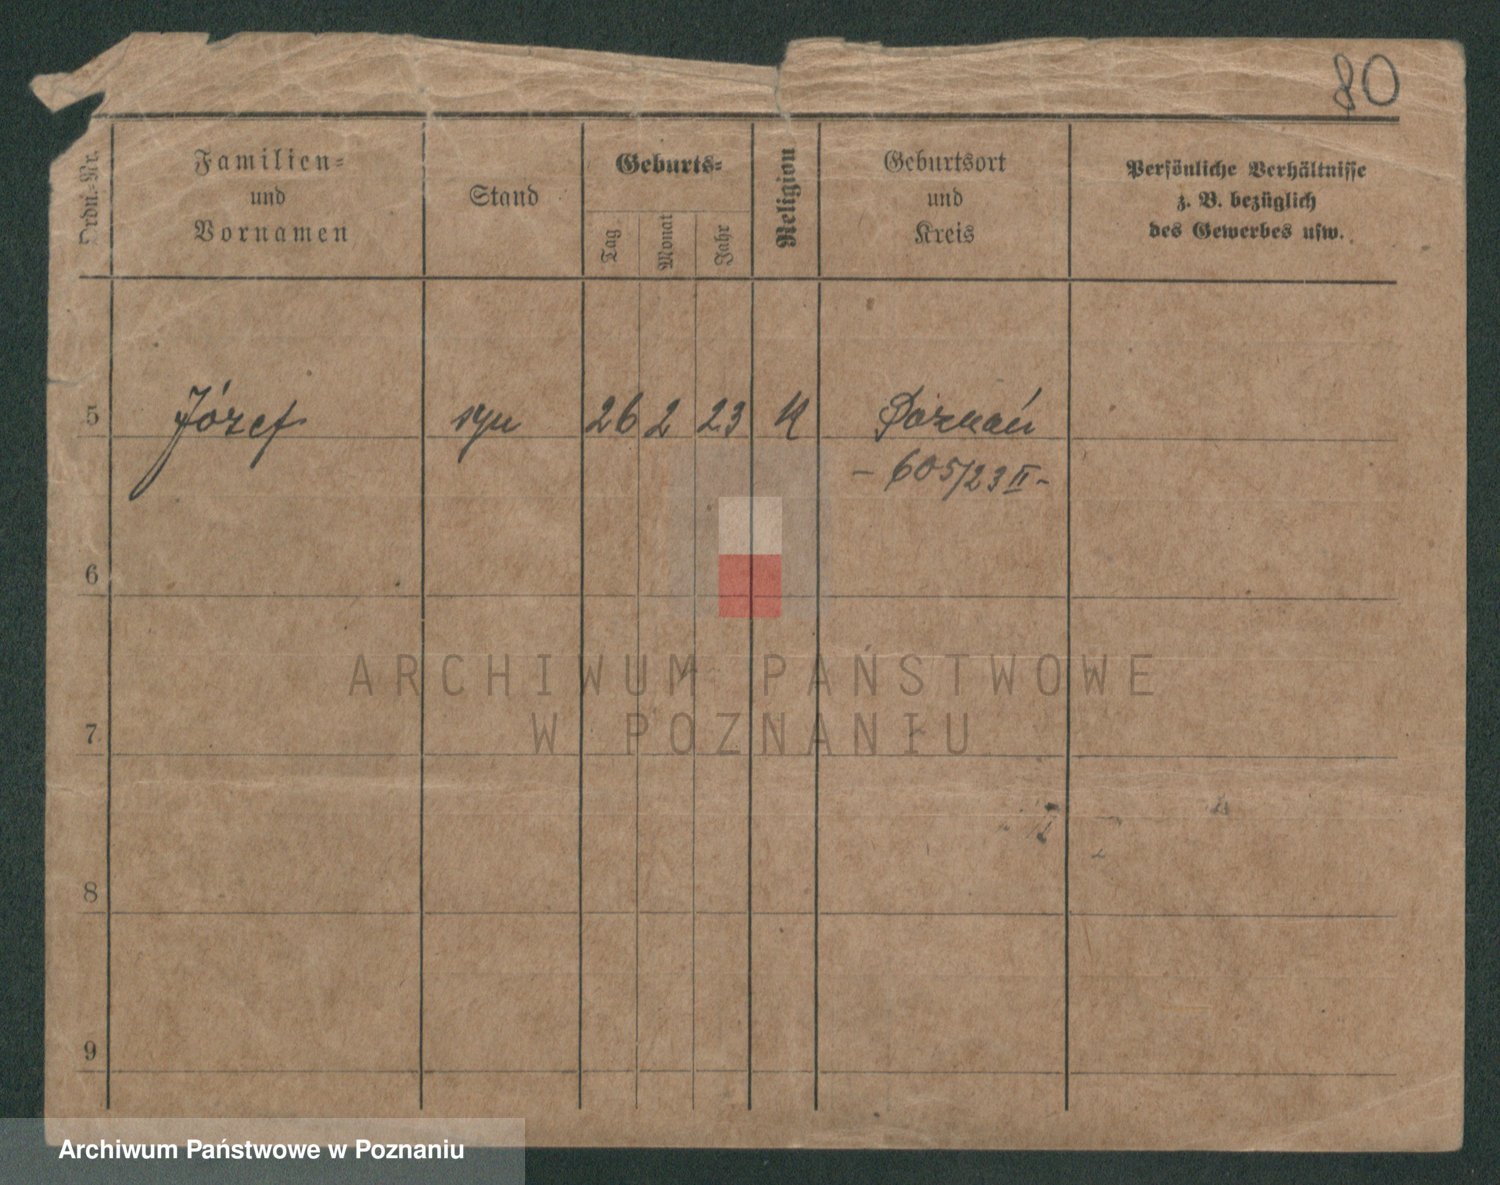 80
Ordn.-Nr.
Familien-
und
Vornamen
Stand
Geburts-
Tag
Monat
Jahr
Religion
Geburtsort
und
Kreis
Persönliche Verhältnisse
z. B. bezüglich
des Gewerbes usw.
5 Józef syn 26 2 23 K Poznań
- 605/23 II -
6
7
8
9
ARCHIWUM PAŃSTWOWE
W POZNANIU
Archiwum Państwowe w Poznaniu